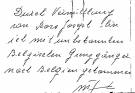 Durch Vermittlung
von Boro Josef bin
ich mit um bekannten
Belgischen Grenzgänger
nach Belgien gekommen